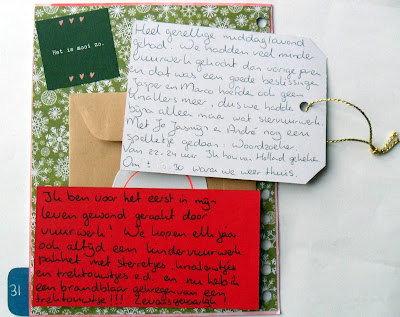 Het is mooi zo.
Heel gezellige middag/avond
gehad. We hadden veel minder
vuurwerk gekocht dan vorige jaren
en dat was een goede beslissing
Jesper en Marco hoefde ook geen
knallers meer, dus we hadden
bijna alleen maar wat siervuurwerk
Met Jo Jasmijn en André nog een
spelletje gedaan: Woordzoeker.
Van 22-24 uur Ik hou van Holland gekeken
Om 1.30 waren we weer thuis.
Ik ben voor het eerst in mijn
leven gewond geraakt door
vuurwerk! We kopen elk jaar
ook altijd een kindervuurwerk
pakket met sterretjes, knalerwtjes
en trektouwtjes e.d. en nu heb ik
een brandblaar gekregen van een
trektouwtje!!! Levensgevaarlijk!
31